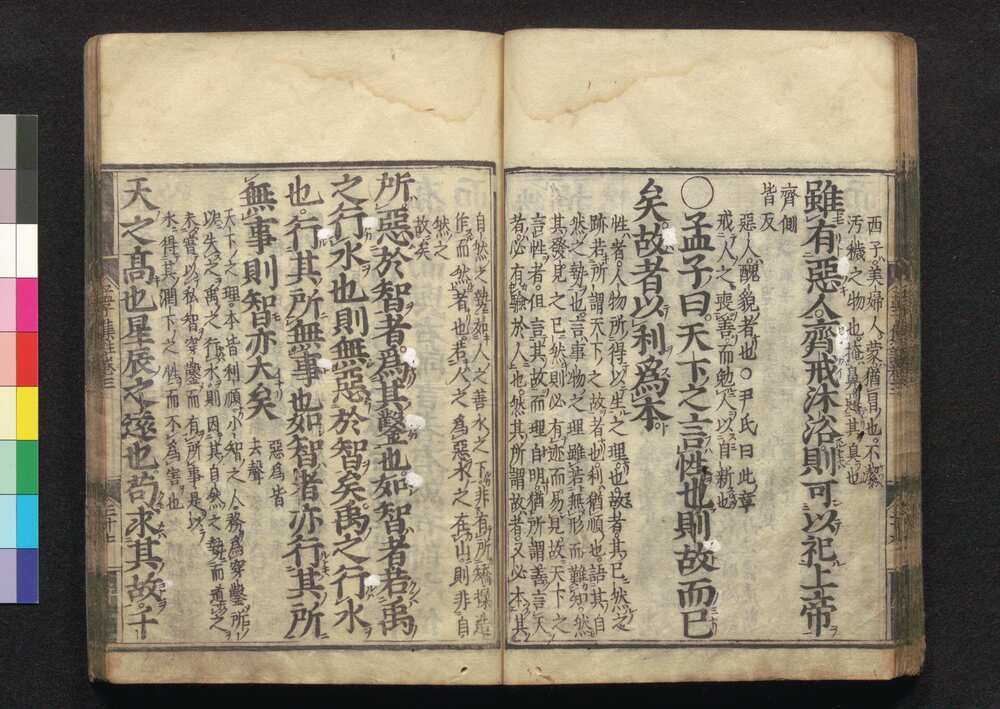 西子美婦人蒙猶冒也不潔
汚穢之物也掩鼻惡其臭也
雖有惡人齊戒沐浴則可以祀上帝
齊側
皆反
惡人醜貌者也○尹氏曰此章
戒人之喪善而勉人以自新也
○孟子曰天下之言性也則故而已
矣故者以利爲本
性者人物所得以生之理也故者其已然之
跡若所謂天下之故者也利猶順也語其自
然之勢也言事物之理雖若無形而難知然
其發見之已然則必有迹而易見故天下之
言性者但言其故而理自明猶所謂善言天
者必有驗於人也然其所謂故者又必本其
自然之勢如人之善水之下非有所矯揉造
作而然者也若人之爲惡水之在山則非自
然之
故矣
所惡於智者爲其鑿也如智者若禹
之行水也則無惡於智矣禹之行水
也行其所無事也如智者亦行其所
無事則智亦大矣
惡爲皆
去聲
天下之理本皆利順小智之人務爲穿鑿所
以失之禹之行水則因其自然之勢而導之
未嘗以私智穿鑿而有所事是以
水得其潤下之性而不爲害也
天之高也星辰之遠也苟求其故千